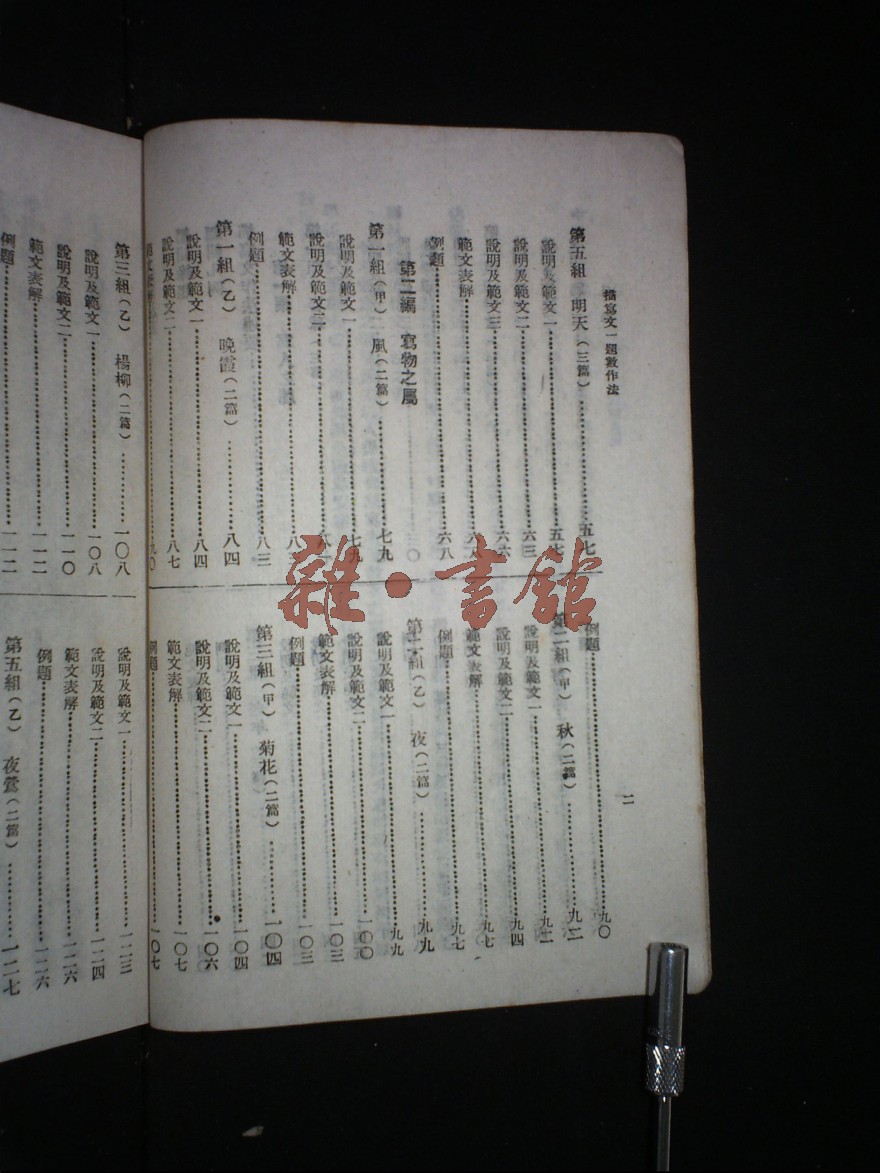 描寫文一題數作法
第五組 明天（三篇）…………五七
說明及範文一…………五七
說明及範文二…………六三
說明及範文三…………六六
範文表解…………六八
例題…………六八
第二編 寫物之屬
第一組（甲） 風（二篇）…………七九
說明及範文一…………七九
說明及範文二…………八一
範文表解…………八
例題…………八三
第一組（乙） 晚霞（二篇）…………八四
說明及範文一…………八四
說明及範文二…………八七
範文表解…………九〇
例題…………九〇
第二組（甲） 秋（二篇）…………九二
說明及範文一…………九二
說明及範文二…………九四
範文表解…………九七
例題…………九七
第二組（乙） 夜（二篇）…………九九
說明及範文一…………九九
說明及範文二…………一〇〇
範文表解…………一〇三
例題…………一〇三
第三組（甲） 菊花（二篇）…………一〇四
說明及範文一…………一〇四
說明及範文二…………一〇六
範文表解…………一〇七
例題…………一〇七
二
第三組（乙） 楊柳（二篇）…………一〇八
說明及範文一…………一〇八
說明及範文二…………一一〇
範文表解…………一一二
例題…………一一二
說明及範文一…………一二三
說明及範文二…………一二四
範文表解…………一二六
例題…………一二六
第五組（乙） 夜鶯（二篇）…………一二七
雜·書館